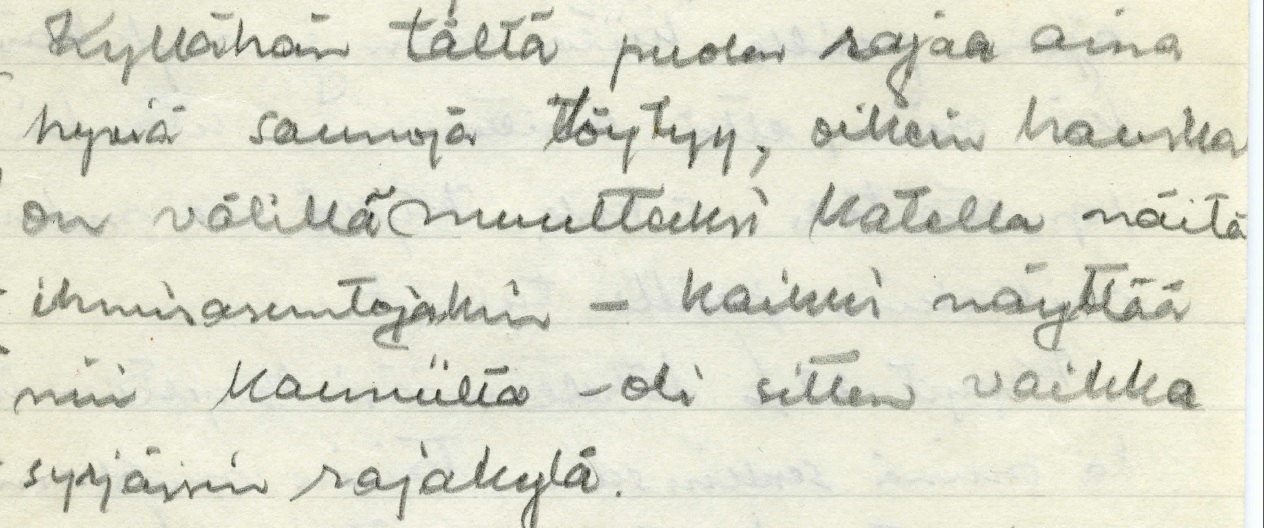 Kyllähän tältä puolen rajaa aina
hyviä saunoja löytyy, oikein hauska
on välillä muutteeksi katella näitä
ihmisasuntojakin – kaikki näyttää
niin kauniilta – oli sitten vaikka
syrjäisin rajakylä.